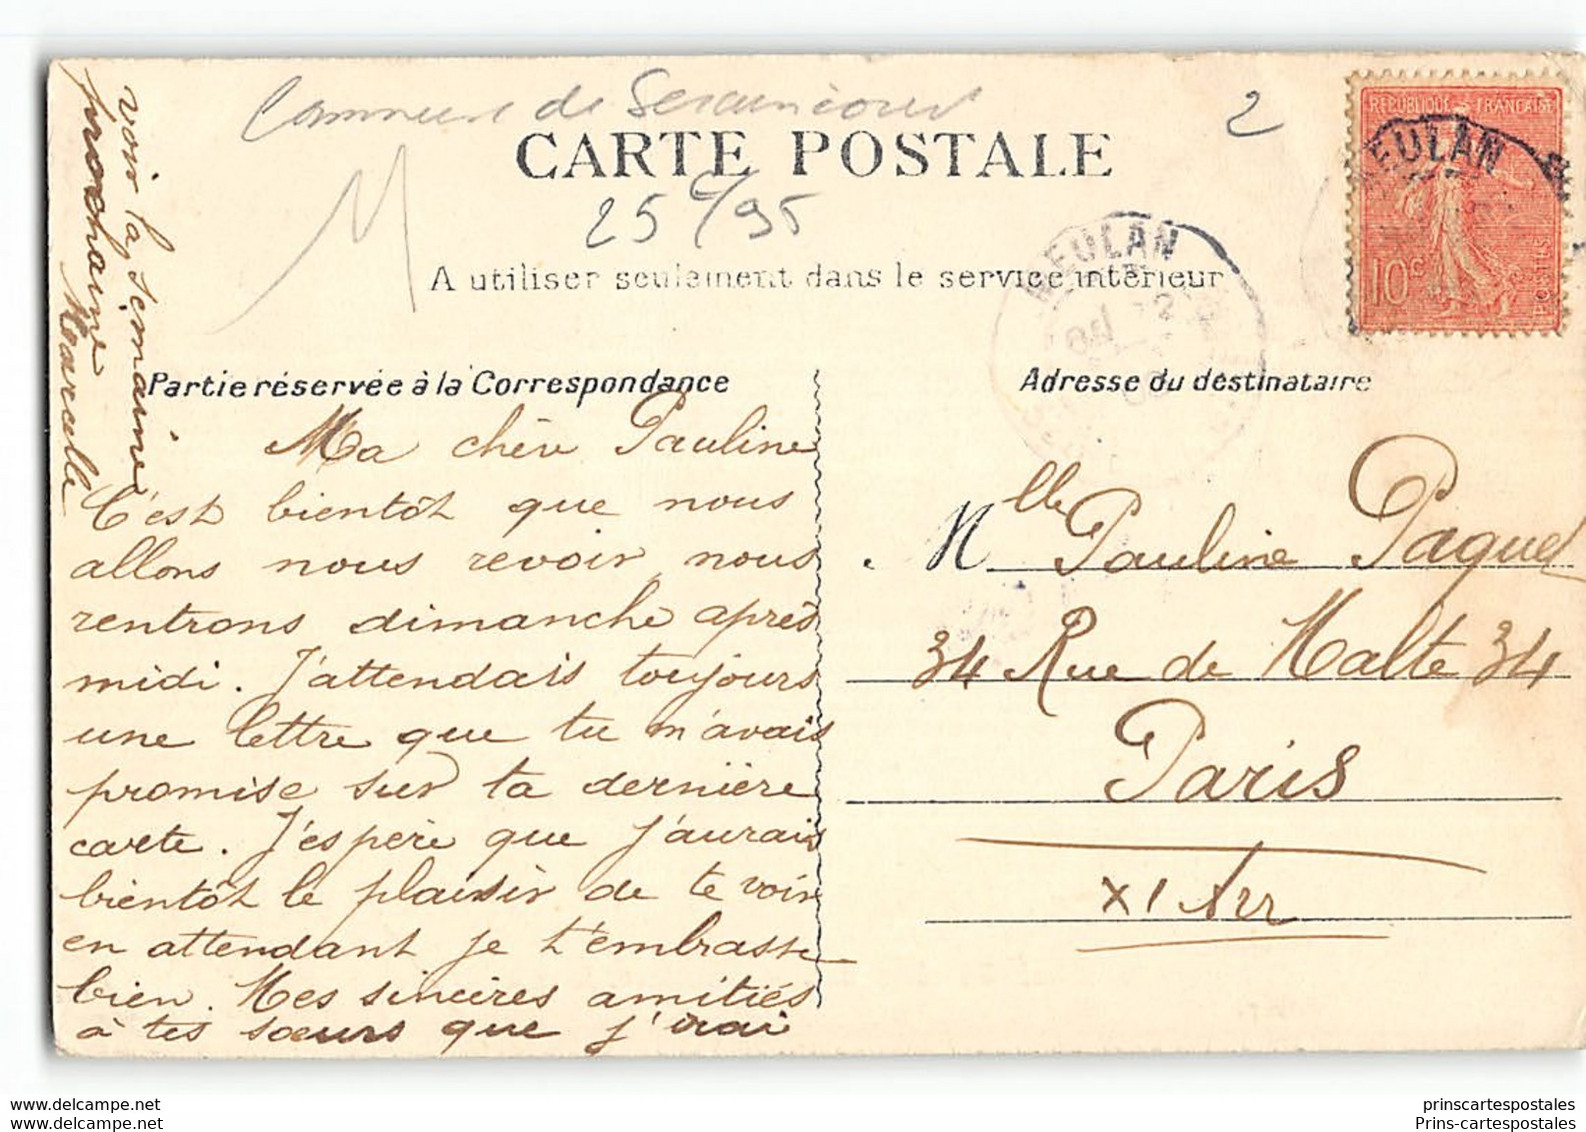 Commune de Seraincourt
2
CARTE POSTALE
M
25 /95
A utiliser seulement dans le service intérieur
REPUBLIQUE FRANÇAISE
10c
POSTES
MEULAN
MEULAN
Partie réservée à la Correspondance
Adresse du destinataire
Ma chère Pauline
C'est bientôt que nous
allons nous revoir nous
rentrons dimanche après
midi. J'attendais toujours
une lettre que tu m'avais
promise sur ta dernière
carte. J'espère que j'aurais
bientôt le plaisir de te voir
en attendant je t'embrasse
bien. Mes sincères amitiés
à tes sœurs que j'irai
voir la semaine
prochaine
Marcelle
Mlle Pauline Paquet
34 Rue de Malte 34
Paris
XI Arr
prinscartespostales
Prins-cartespostales
prinscartespostales
Prins-cartespostales